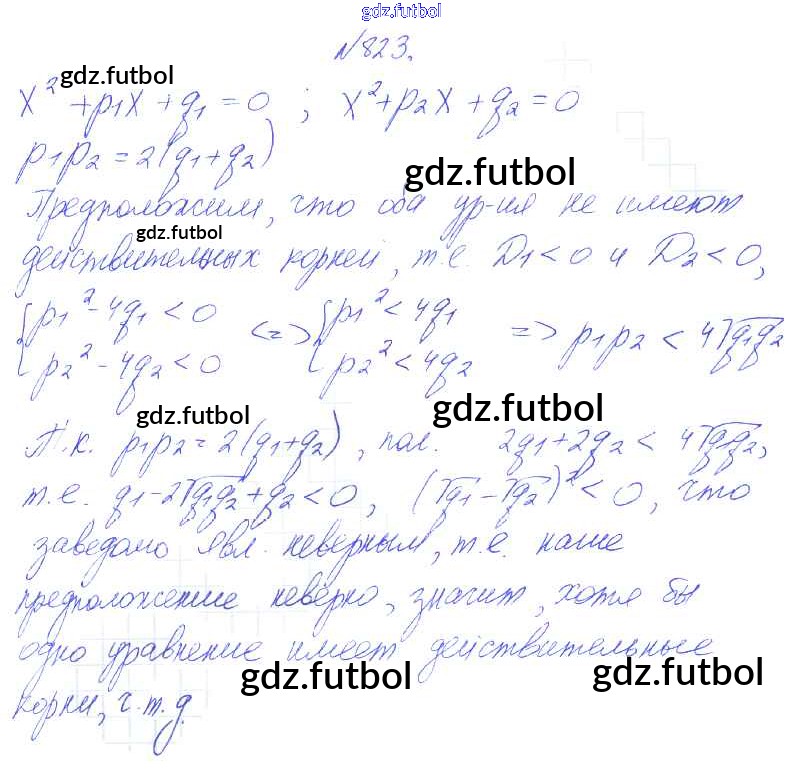 gdz.futbol
№823.
gdz.futbol
x² + p₁x + q₁ = 0 ; x² + p₂x + q₂ = 0
p₁p₂ = 2(q₁+q₂)
gdz.futbol
Предположим, что оба ур-ия не имеют
gdz.futbol
действительных корней, т.е. D₁ < 0 и D₂ < 0,
{p₁² - 4q₁ < 0 <=> {p₁² < 4q₁ => p₁p₂ < 4√q₁q₂
{p₂² - 4q₂ < 0 {p₂² < 4q₂
gdz.futbol gdz.futbol
Т.к. p₁p₂ = 2(q₁+q₂), пол. 2q₁ + 2q₂ < 4√q₁q₂,
т.е. q₁ - 2√q₁q₂ + q₂ < 0, (√q₁ - √q₂)² < 0, что
заведомо явл. неверным, т.е. наше
предположение неверно, значит, хотя бы
одно уравнение имеет действительные
gdz.futbol gdz.futbol
корни, ч.т.д.